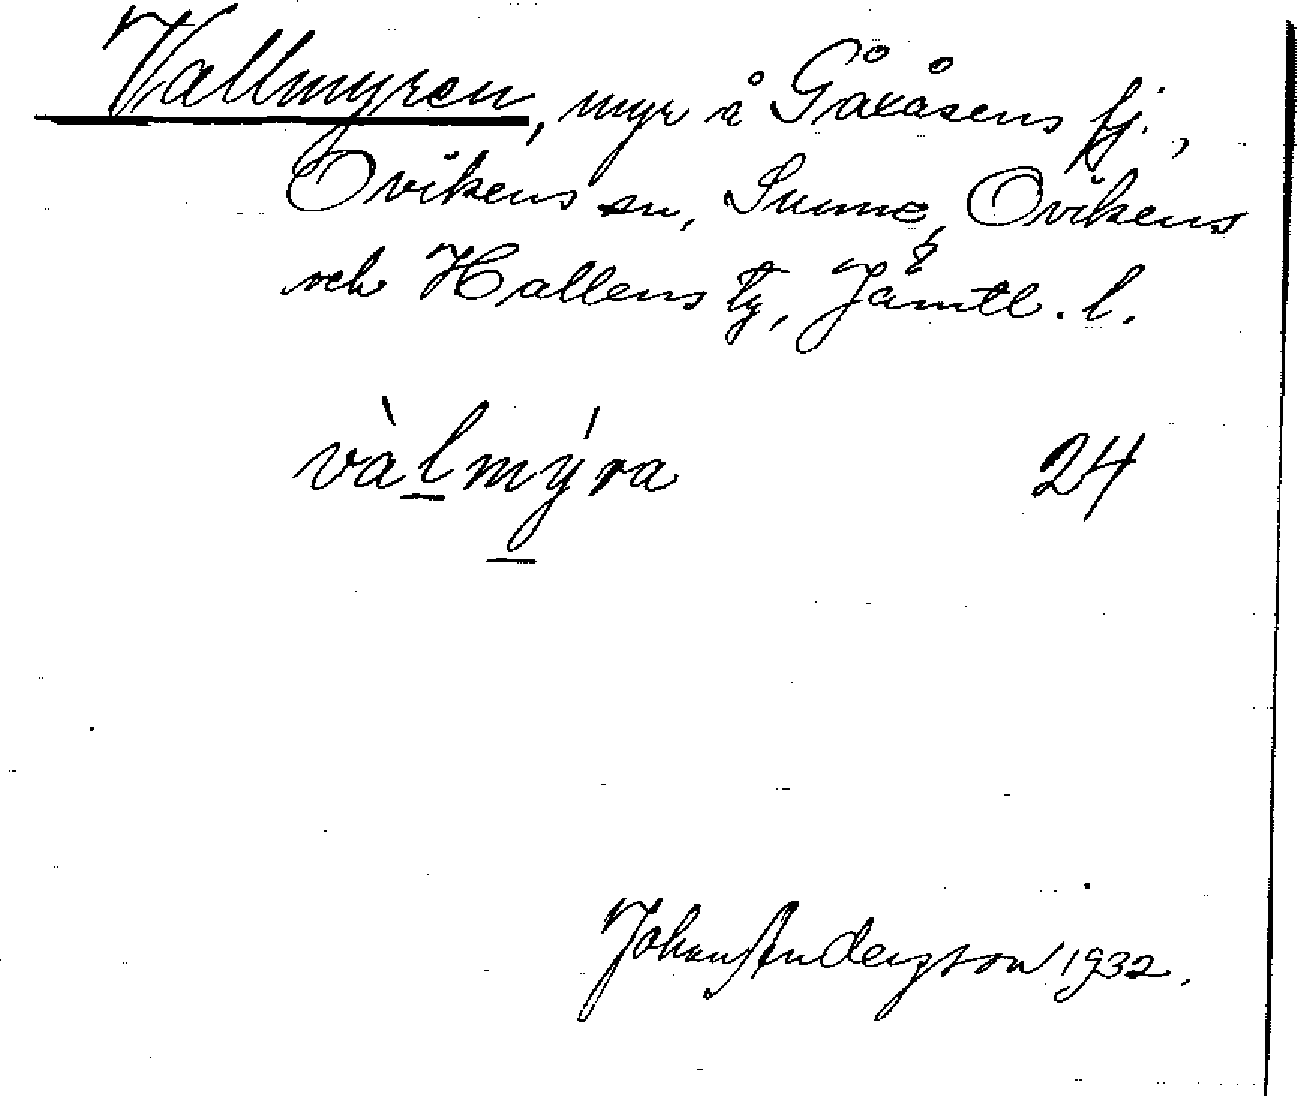 Vallmyren, myr å Gåxåsens fj.,
Ovikens sn, Sunne, Ovikens
och Hallens tg, Jämtl. l.
vàlmýra 24
Johan Anderzson 1932.